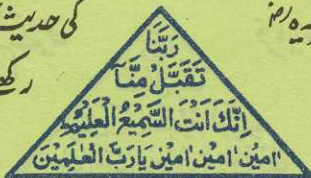 کی حدیث
رکھے
رَبَّنَا
تَقَبَّلْ مِنَّا
اِنَّكَ اَنْتَ السَّمِيْعُ الْعَلِيْمُ
اٰمِيْن اٰمِيْن اٰمِيْن يَارَبَّ الْعٰلَمِيْنَ